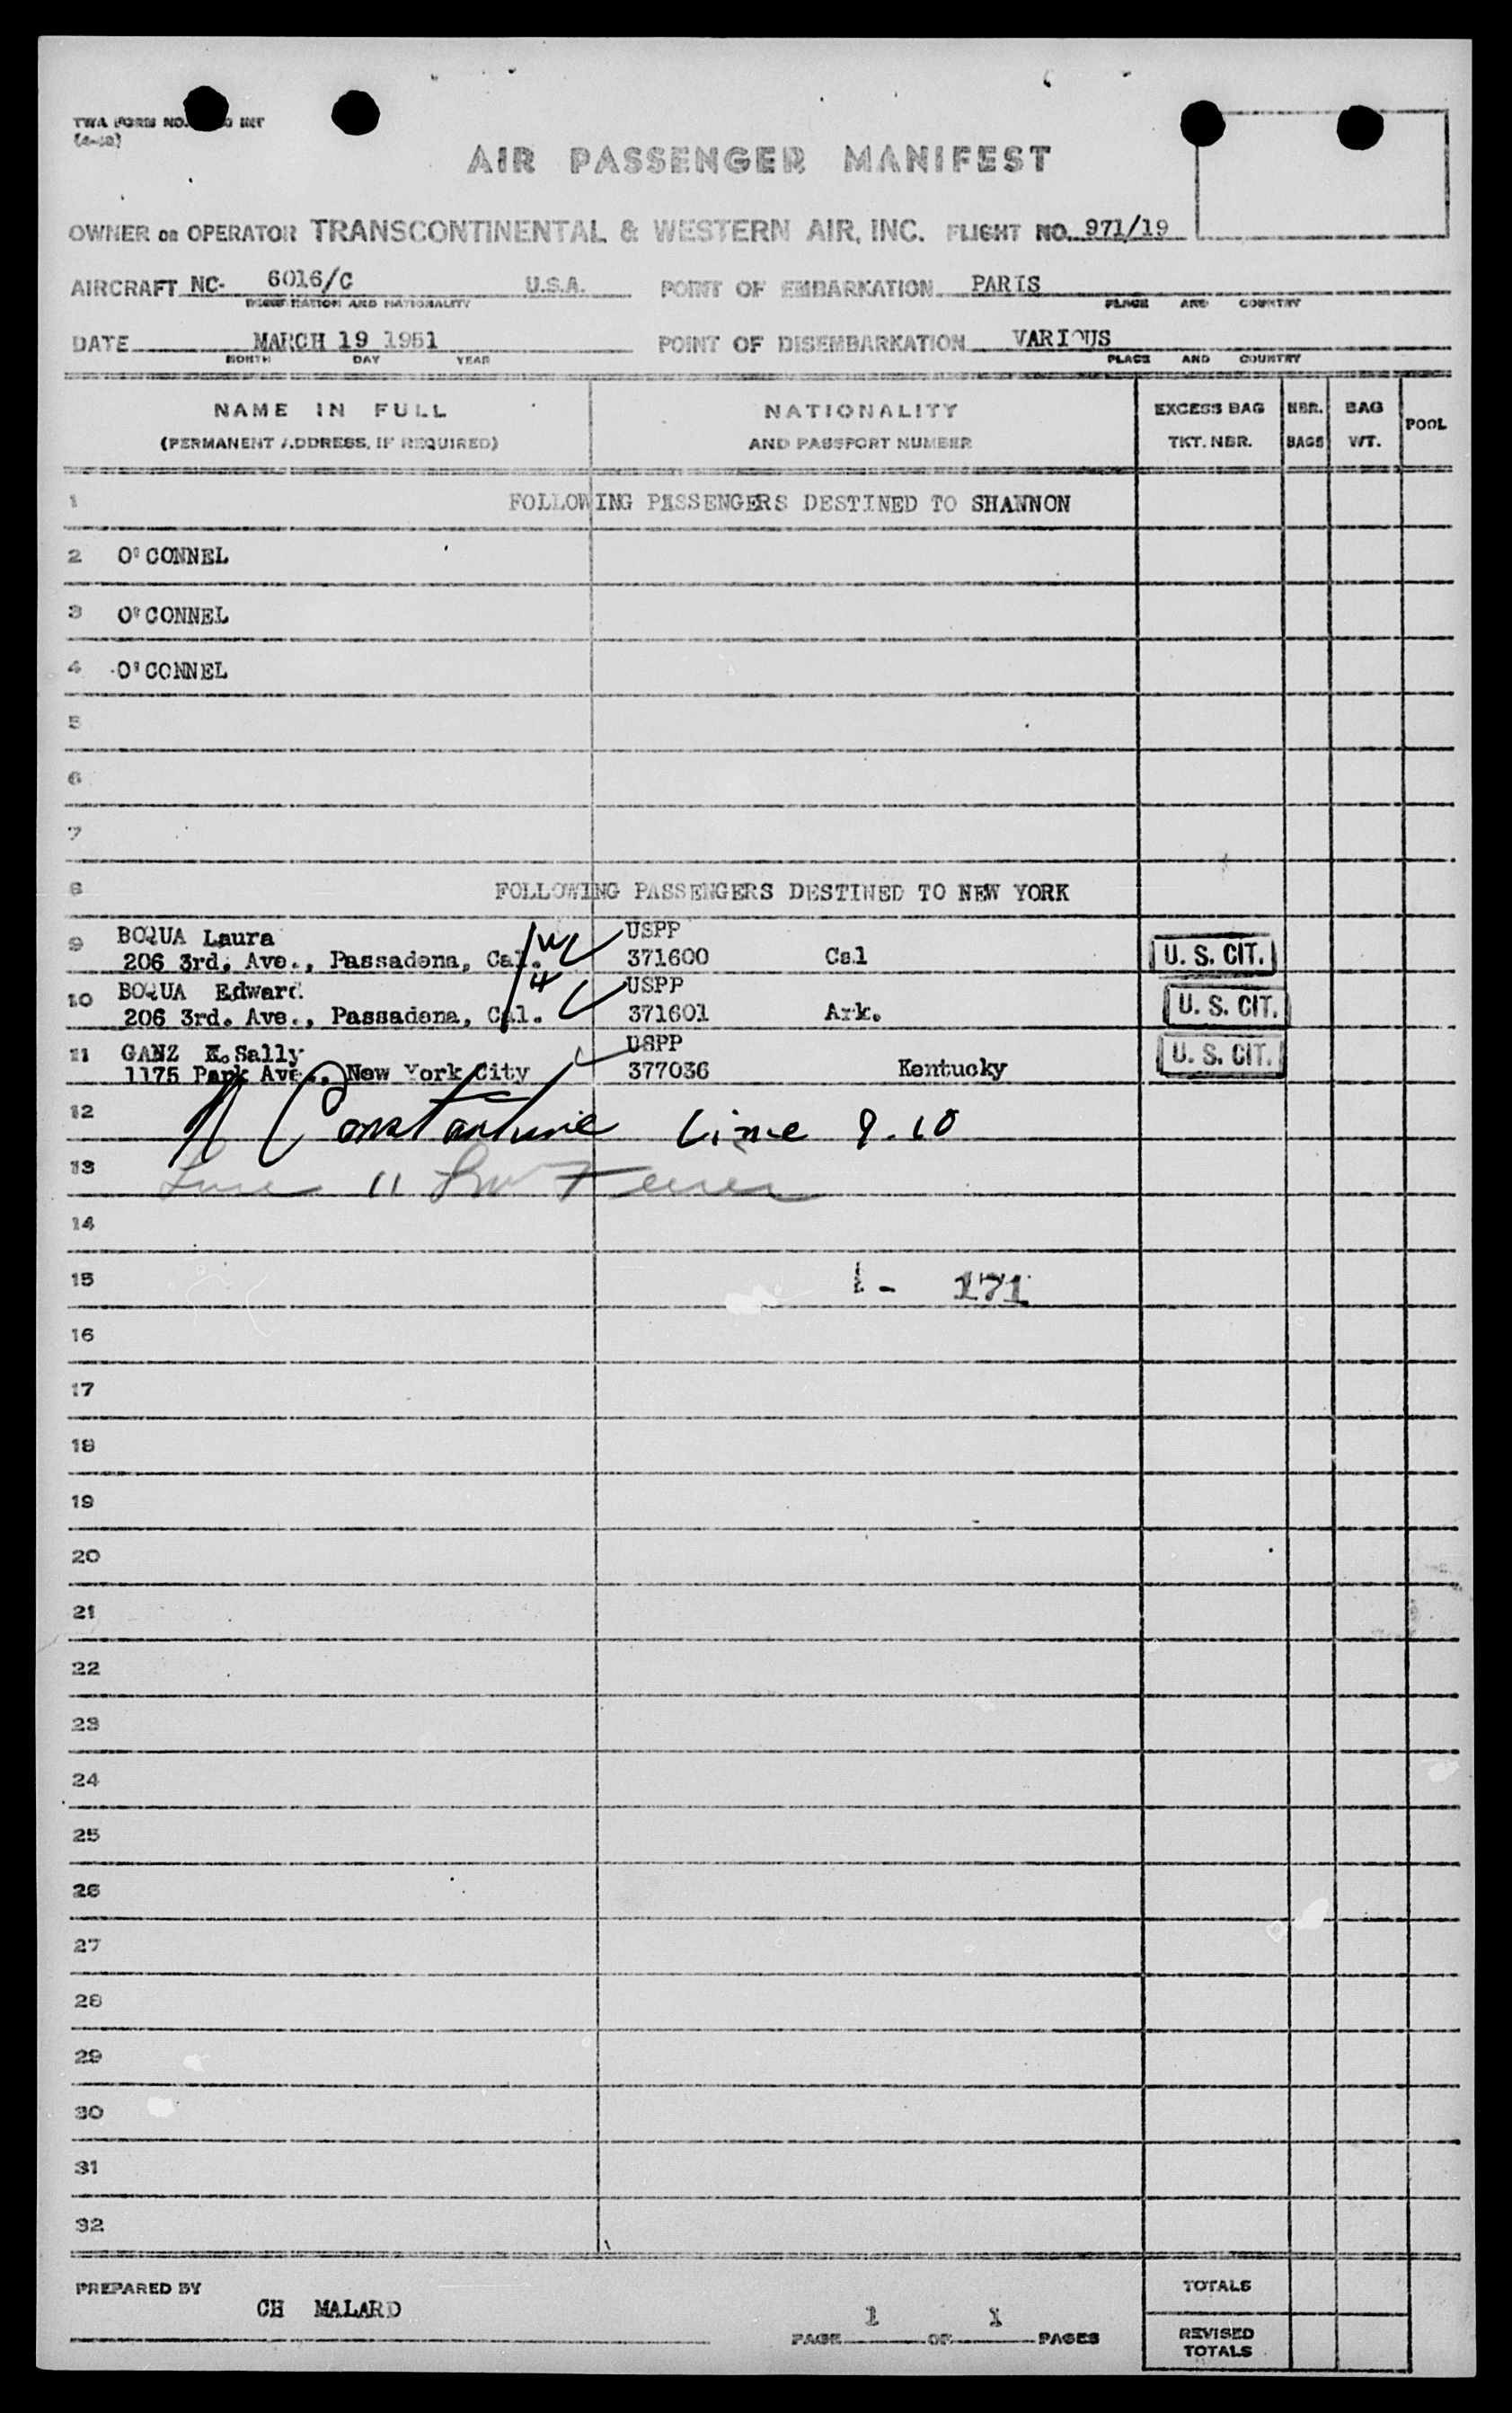 TWA FORM NO. INT
AIR PASSENGER MANIFEST
OWNER OR OPERATOR TRANSCONTINENTAL & WESTERN AIR, INC. FLIGHT NO. 971/19
AIRCRAFT NC- 6016/C U.S.A. POINT OF EMBARKATION PARIS
AND NATIONALITY PLACE AND COUNTRY
DATE MARCH 19 1951 POINT OF DISEMBARKATION VARIOUS
MONTH DAY YEAR PLACE AND COUNTRY
NAME IN FULL NATIONALITY EXCESS BAG NBR. BAG POOL
(PERMANENT ADDRESS, IF REQUIRED) AND PASSPORT NUMBER TKT. NBR. BAGS WT.
1 FOLLOWING PASSENGERS DESTINED TO SHANNON
2 O'CONNEL
3 O'CONNEL
4 O'CONNEL
5
6
7
8 FOLLOWING PASSENGERS DESTINED TO NEW YORK
9 BOQUA Laura W USPP
206 3rd. Ave., Passadena, Cal. 371600 Cal U. S. CIT.
10 BOQUA Edward H USPP
206 3rd. Ave., Passadena, Cal. 371601 Ark. U. S. CIT.
11 GANZ K.Sally USPP
1175 Park Ave., New York City 377036 Kentucky U. S. CIT.
12 N Constantine Line 9.10
13 Line 11
14
15 1- 171
16
17
18
19
20
21
22
23
24
25
26
27
28
29
30
31
32
PREPARED BY TOTALS
CH MALARD
PAGE 1 OF 1 PAGES REVISED
TOTALS